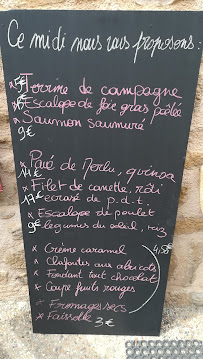 Ce midi nous vous proposons :
5€ Terrine de campagne
Escalope de foie gras poêlée
Saumon Saumuré
9€
Pavé de Merlu, quinoa
14€
Filet de canette, rôti
17€ écrasé de p.d.t.
x Escalope de poulet
9€ legumes du soleil, riz
x Crème caramel
x Clafoutis aux abricots 4,50€
x Fondant tout chocolat
x Coupe fruits rouges
x Fromages secs
x Faisselle 3€